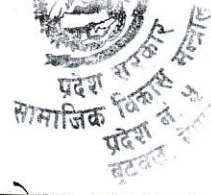 प्रदेश सरकार
सामाजिक विकास मन्त्रालय
प्रदेश नं ५
बुटवल, नेपाल